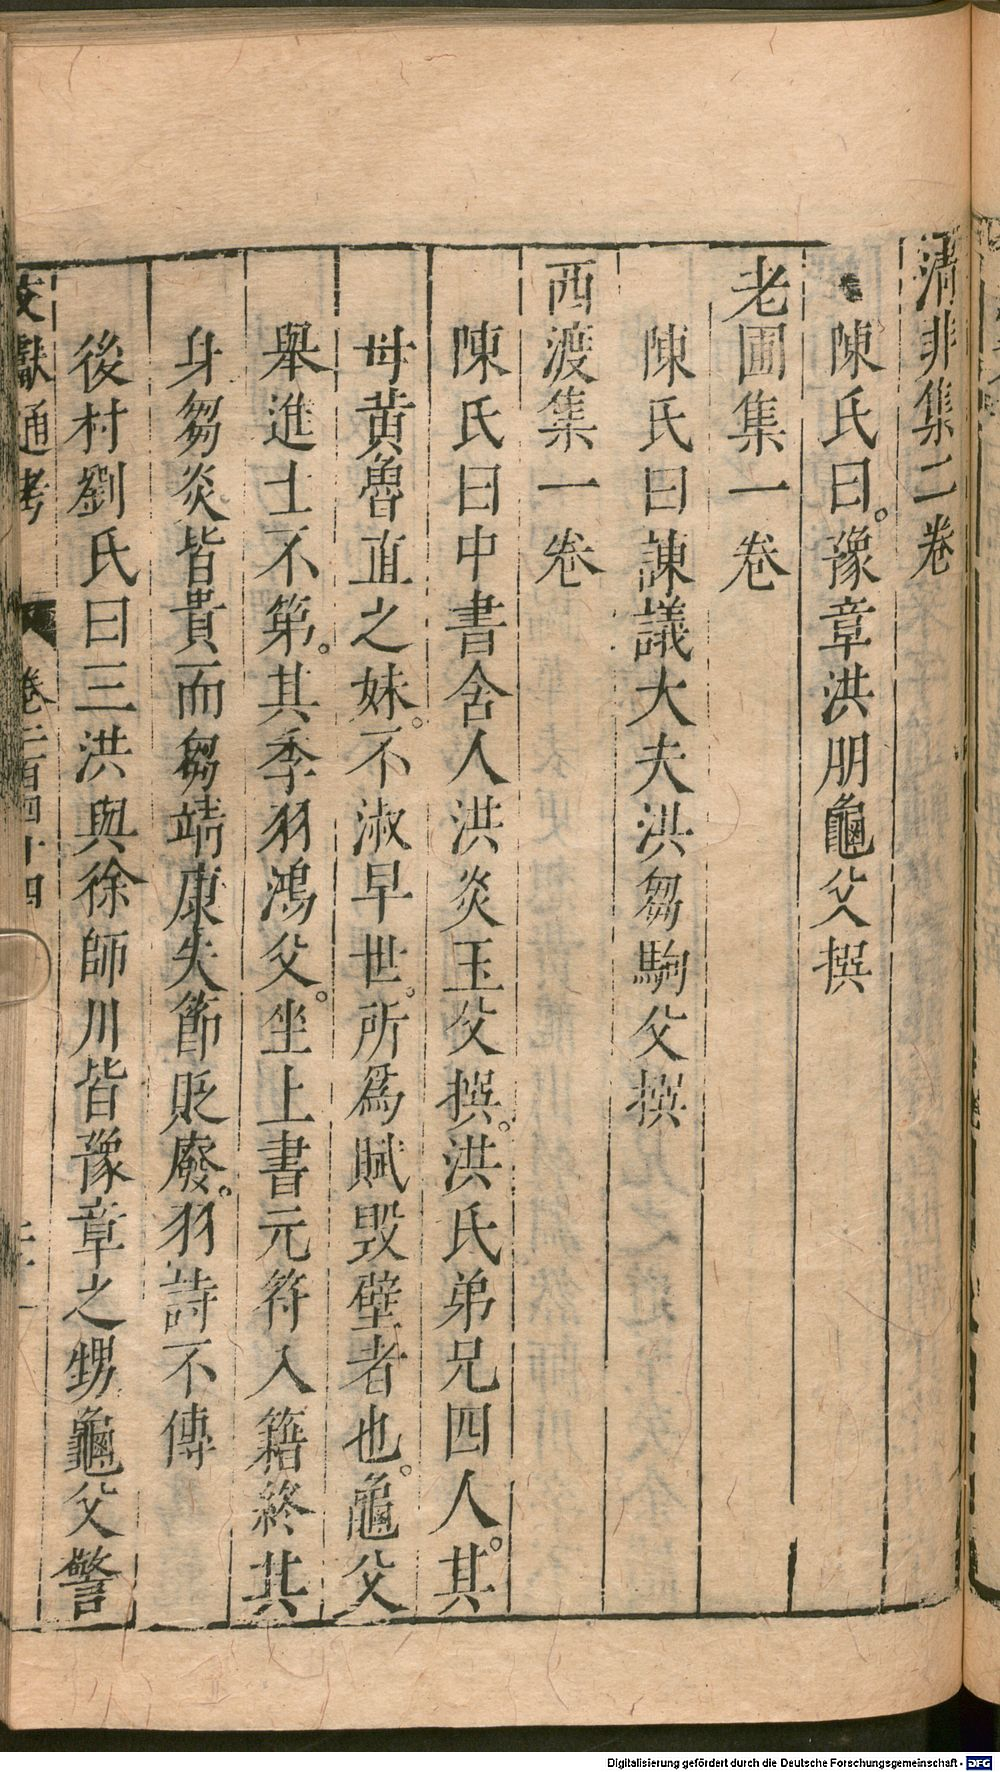 清非集二卷
陳氏曰。豫章洪朋龜父撰
老圃集一卷
陳氏曰諫議大夫洪芻駒父撰
西渡集一卷
陳氏曰中書舍人洪炎玉父撰。洪氏弟兄四人。其
母黄魯直之妹。不淑早世。所爲賦毁璧者也。龜父
舉進士不第。其季羽鴻父。坐上書元符入籍終其
身芻炎皆貴而芻靖康失節貶廢。羽詩不傳
後村劉氏曰三洪與徐師川皆豫章之甥龜父警
文獻通考 卷二百四十四
Digitalisierung gefördert durch die Deutsche Forschungsgemeinschaft - DFG